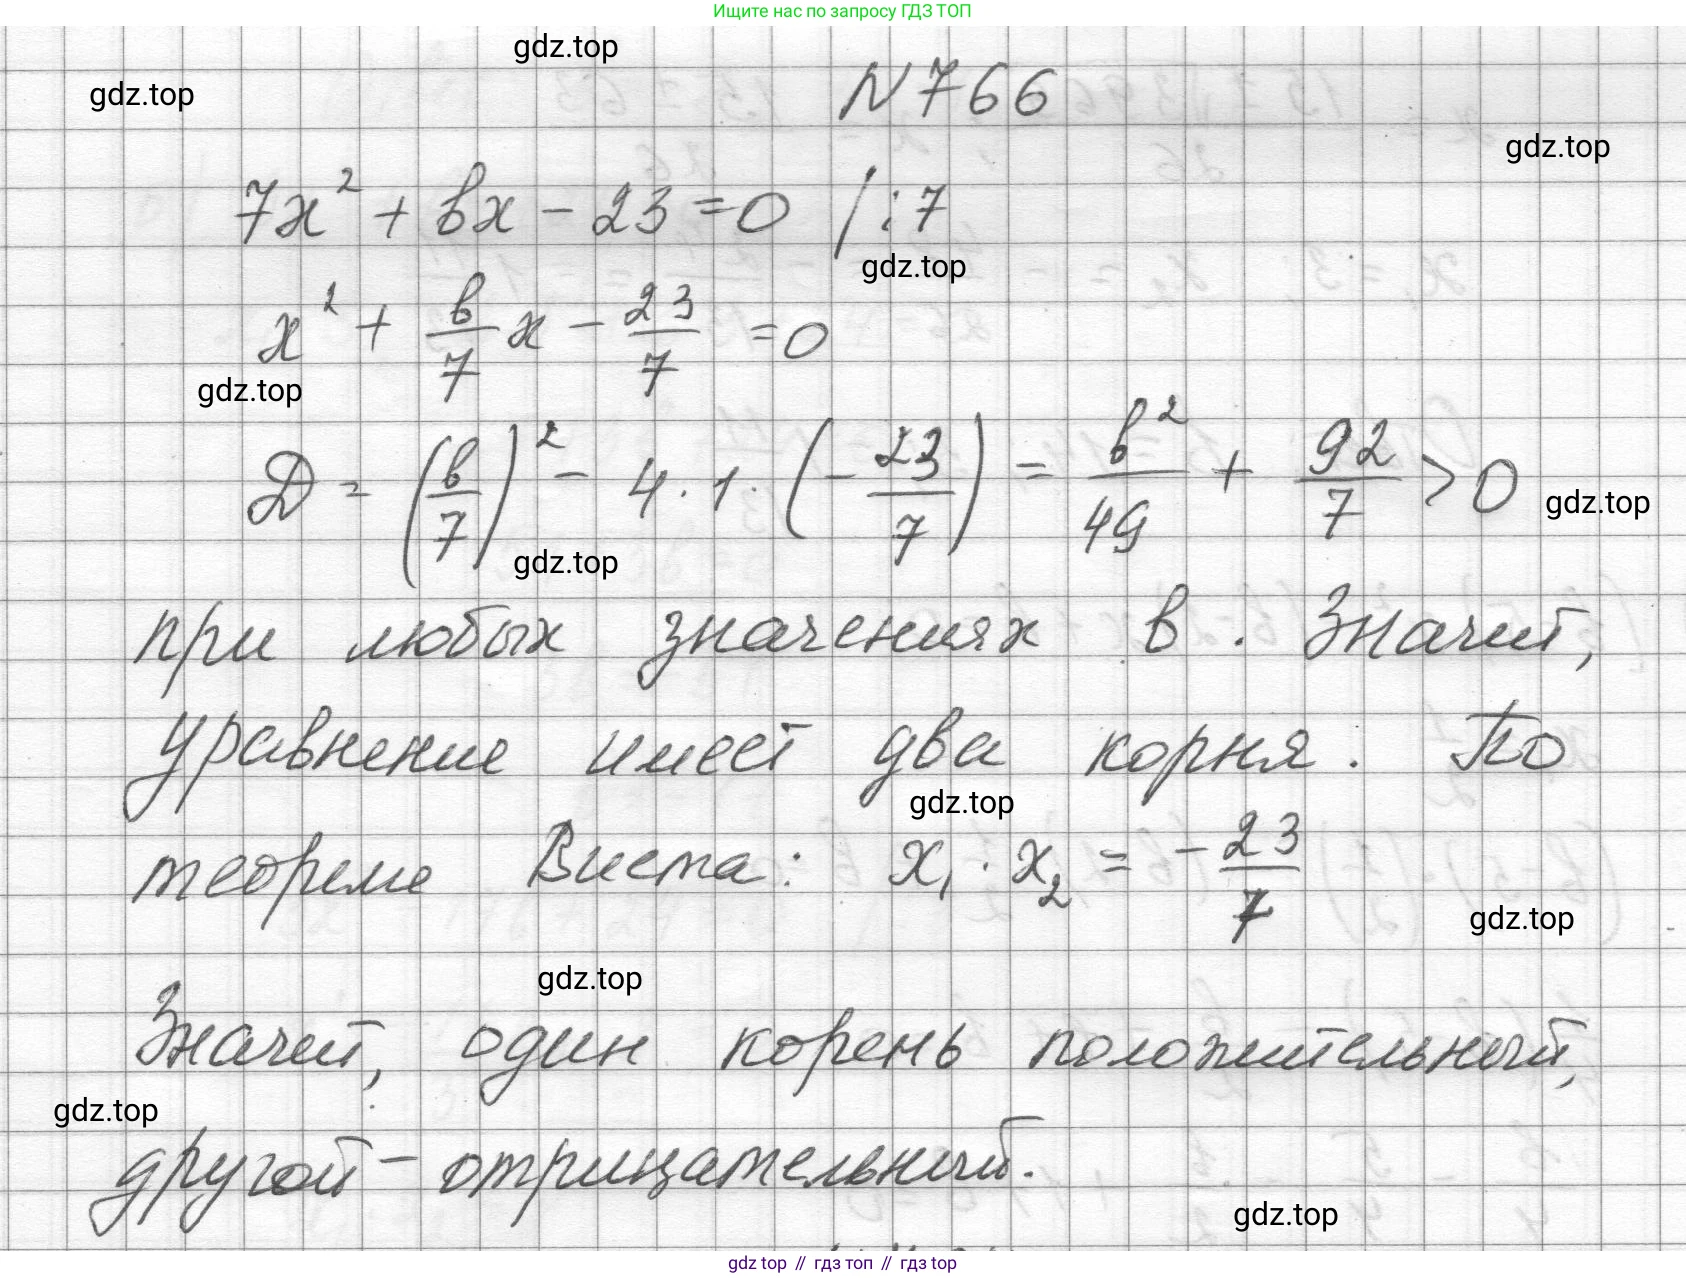 Ищите нас по запросу ГДЗ ТОП
gdz.top
gdz.top
N766
gdz.top
7x² + bx - 23 = 0 | :7
gdz.top
x² + b/7 x - 23/7 = 0
gdz.top
D = (b/7)² - 4 · 1 · (-23/7) = b²/49 + 92/7 > 0
gdz.top
gdz.top
при любых значениях b. Значит,
уравнение имеет два корня. По
gdz.top
теореме Виета: x₁ · x₂ = -23/7
gdz.top
gdz.top
Значит, один корень положительный,
gdz.top
другой - отрицательный.
gdz.top
gdz top // гдз топ // гдз top